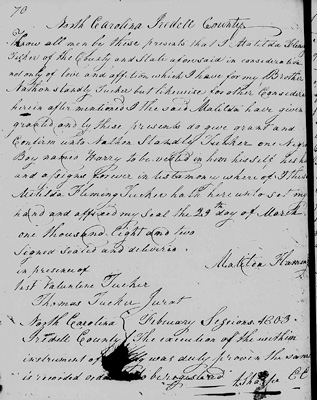 70
North Carolina Iredell County
Know all men be these presents that I Matilda Fleming
Tucker of the County and State aforesaid in consideration
not only of love and affition which I have for my Brother
Nathon Standly Tucker but likewise for other Consider
herein after mentioned I the said Matilda have given
granted and by these presents do give grant and
Confirm unto Nathon Standly Tucker one Negro
Boy named Harry to be vested in him hisself heirs
and assigns forever in testamony where of I the sd
Matilda Fleming Tucker hath hereunto set my
hand and affixed my Seal the 23th day of March
one thousand Eight and two
Signed sealed and deliverin
in presence of
Matilda Fleming
test Valuntine Tucker
Thomas Tucker Jurat
North Carolina February Sessions 1803
Iredell County The execution of the within
instrument of was duly proven the same
is recorded to be registered Sharpe CC